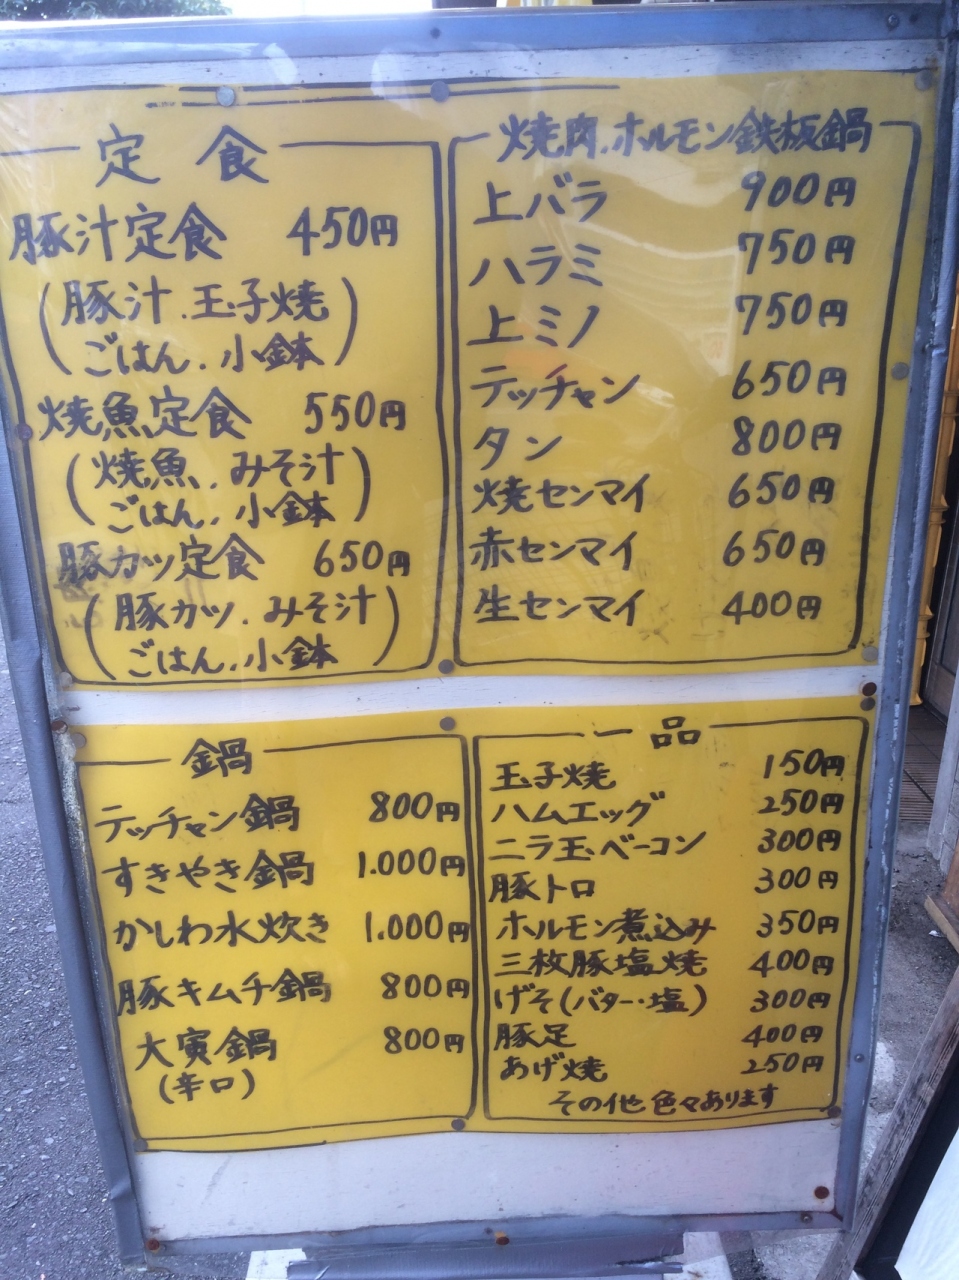 定食
豚汁定食 450円
(豚汁.玉子焼
ごはん.小鉢)
焼魚定食 550円
(焼魚.みそ汁
ごはん.小鉢)
豚カツ定食 650円
(豚カツ.みそ汁
ごはん.小鉢)
焼肉.ホルモン鉄板鍋
上バラ 900円
ハラミ 750円
上ミノ 750円
テッチャン 650円
タン 800円
焼センマイ 650円
赤センマイ 650円
生センマイ 400円
鍋
テッチャン鍋 800円
すきやき鍋 1.000円
かしわ水炊き 1.000円
豚キムチ鍋 800円
大寅鍋 800円
(辛口)
一品
玉子焼 150円
ハムエッグ 250円
ニラ玉.ベーコン 300円
豚トロ 300円
ホルモン煮込み 350円
三枚豚塩焼 400円
げそ(バター・塩) 300円
豚足 400円
あげ焼 250円
その他色々あります